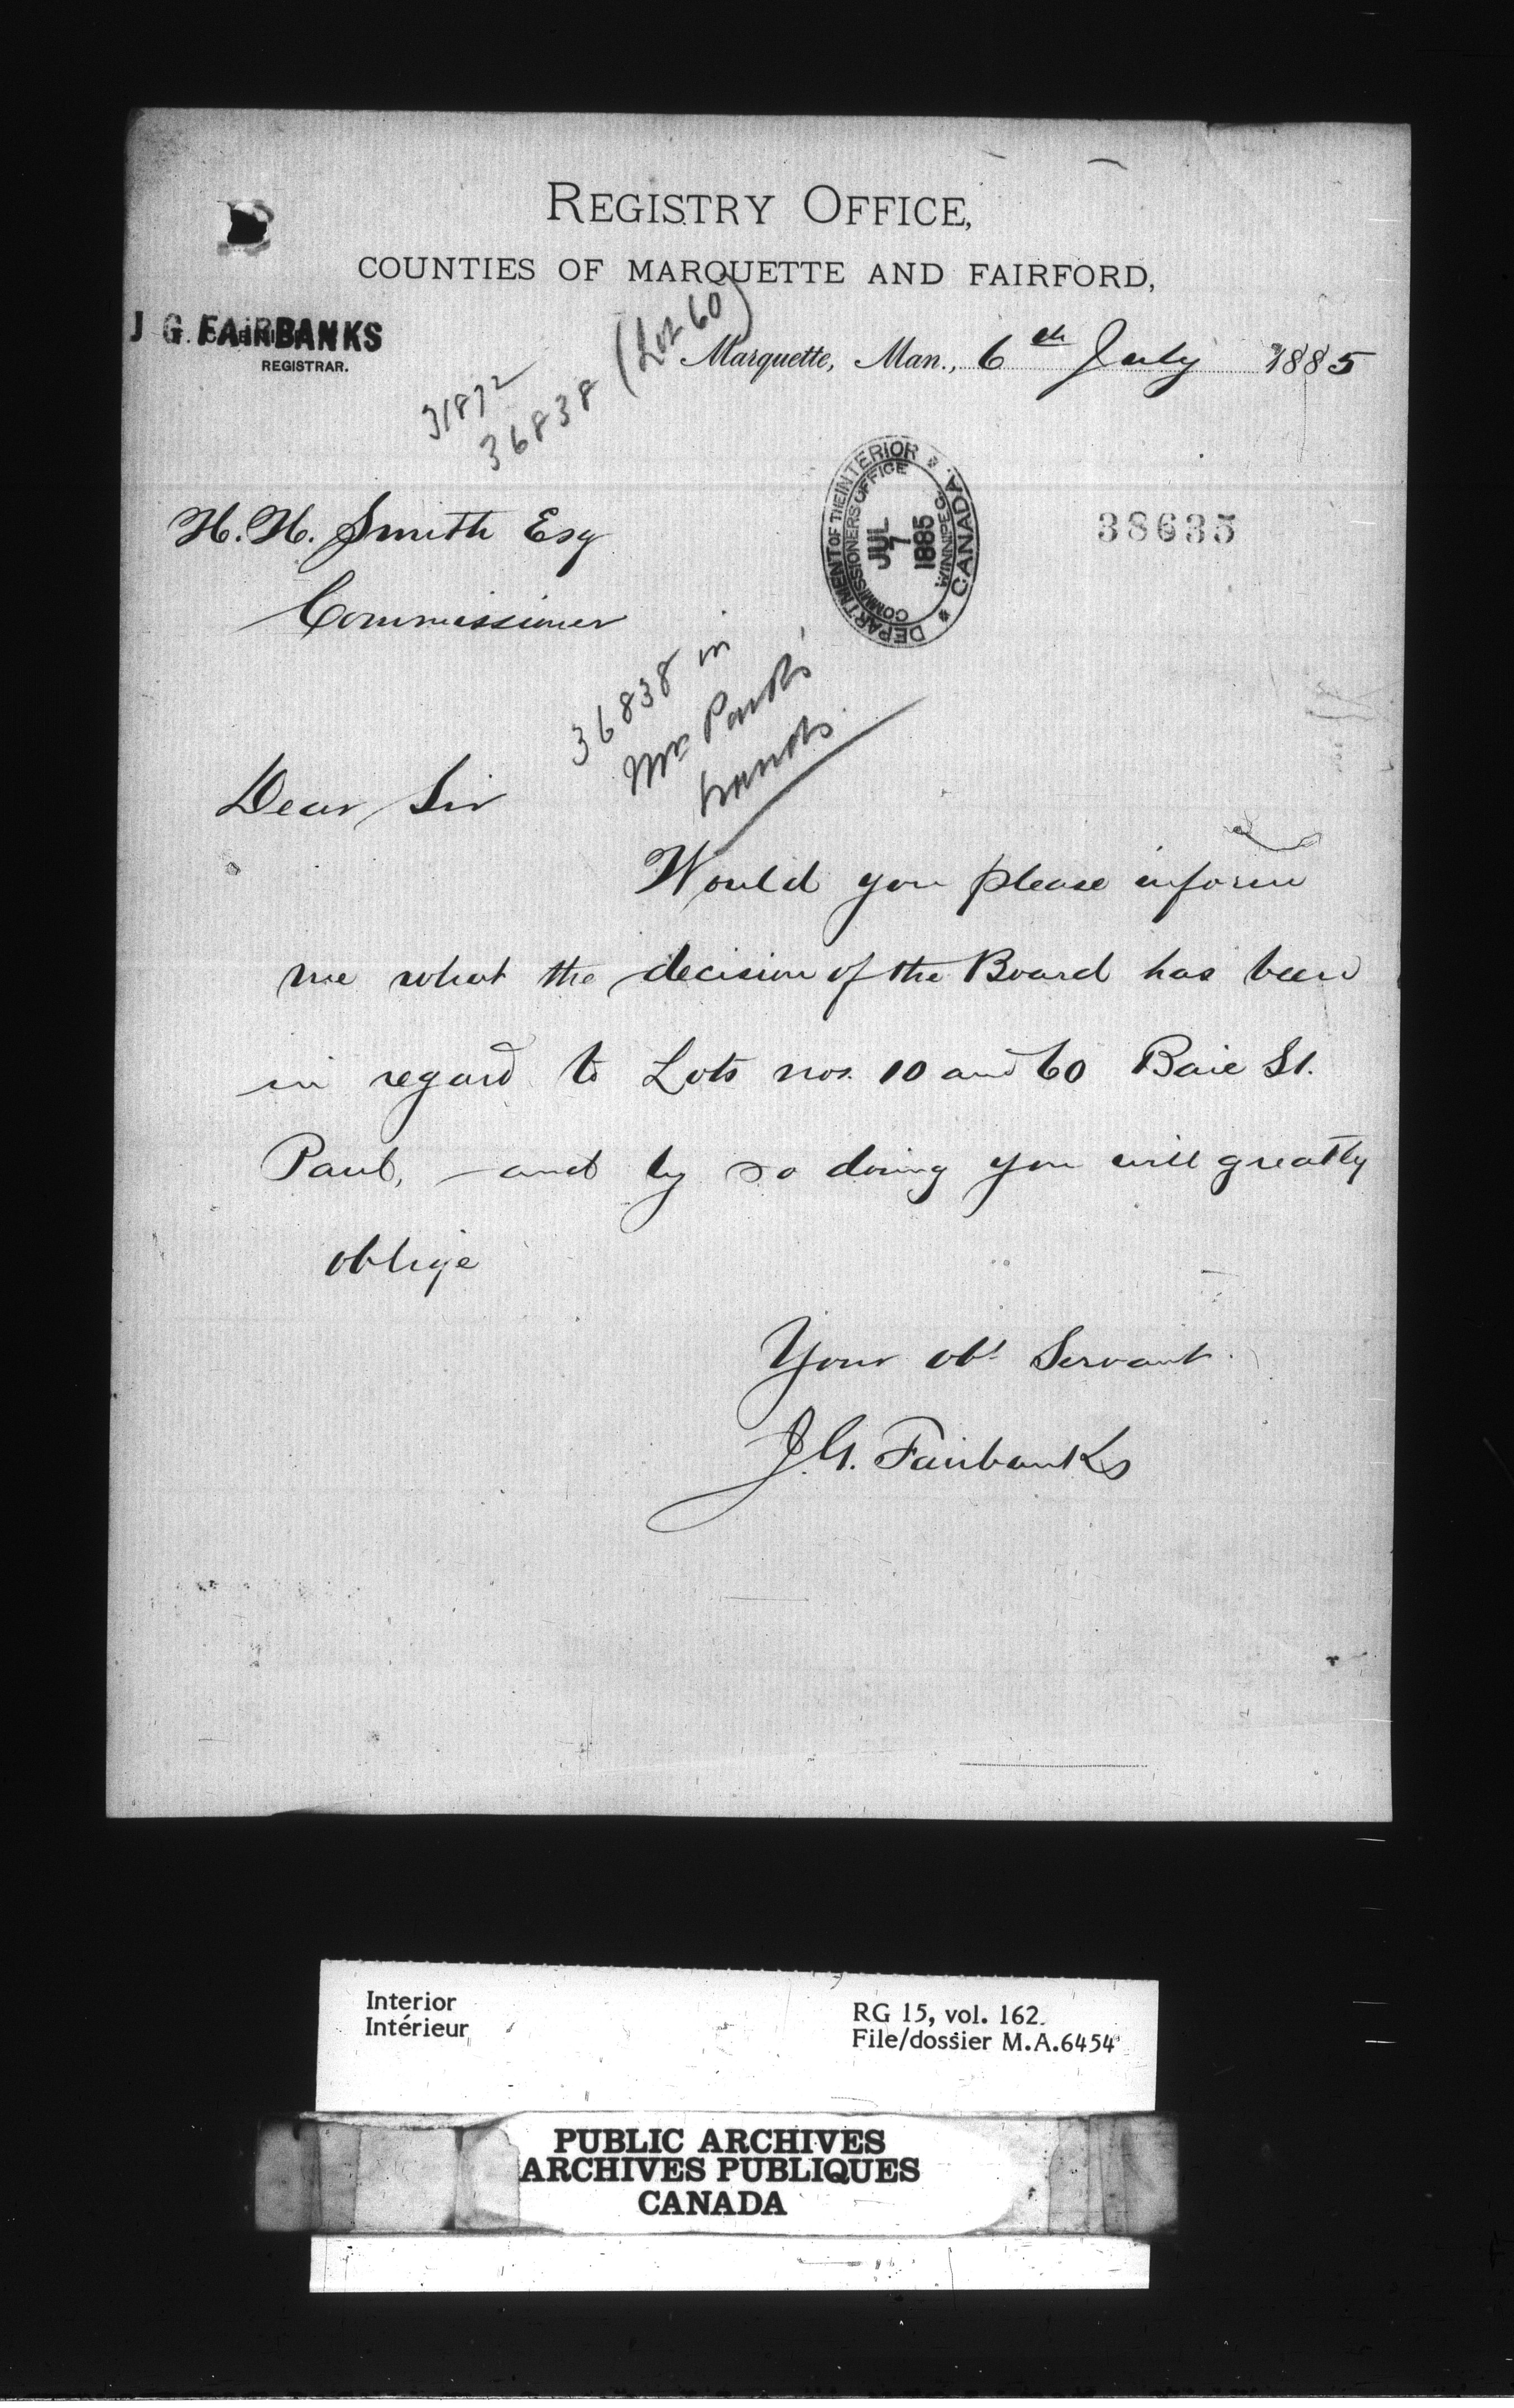 REGISTRY OFFICE,
COUNTIES OF MARQUETTE AND FAIRFORD,
J G FAIRBANKS
REGISTRAR.
Marquette, Man., 6th July 1885
31872
36838 (Lot 60)
DEPARTMENT OF THE INTERIOR * CANADA *
COMMISSIONERS OFFICE
WINNIPEG
JUL
7
1885
38635
H. H. Smith Esq
Commissioner
36838 in
Mr
hands.
Dear Sir
Would you please inform
me what the decision of the Board has been
in regard to Lots nos. 10 and 60 Baie St.
Paul, and by so doing you will greatly
oblige
Your obt Servant.
J. G. Fairbanks
Interior
Intérieur
RG 15, vol. 162.
File/dossier M.A.6454
PUBLIC ARCHIVES
ARCHIVES PUBLIQUES
CANADA